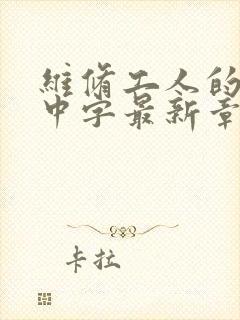 維脩工人的
中字最新章
卡拉